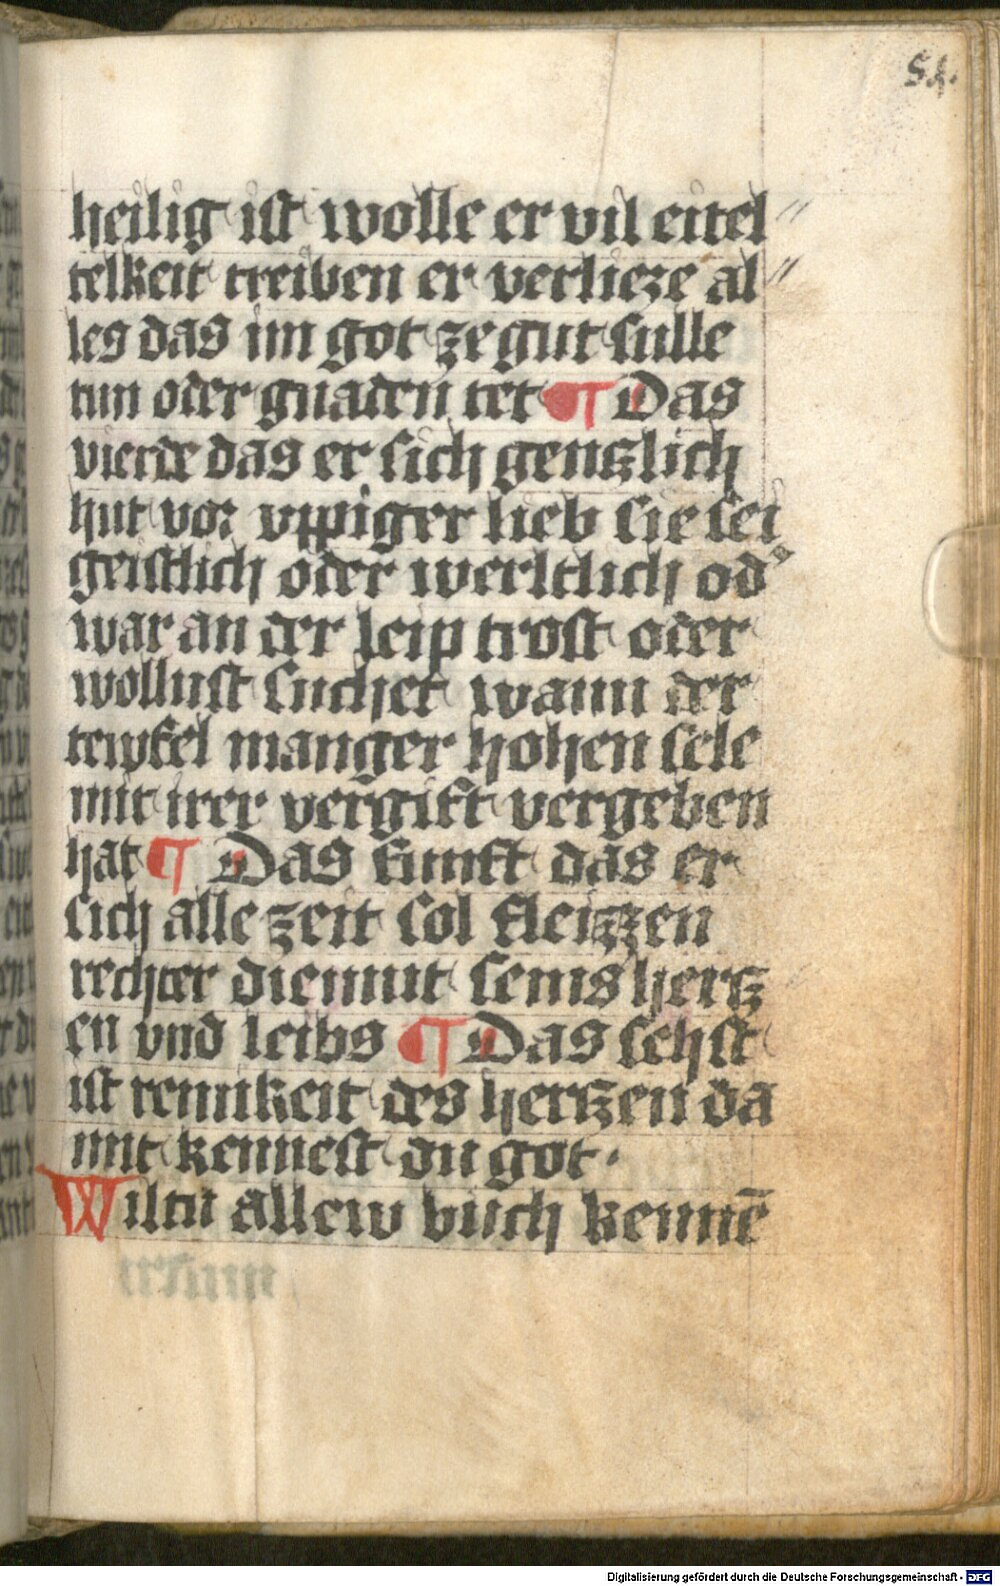 54.
heilig ist wolle er vil eitel//
telkeit treiben er verlieze al//
les das im got ze gut sulle
tun oder gnaden tet ¶ Das
vierde das er sich gentzlich
hut vor vppiger lieb sie sei
geistlich oder werltlich od'
war an der leip trost oder
wollust suchet wann der
tewfel manger hohen sele
mit irer vergift vergeben
hat ¶ Das funft das er
sich alle zeit sol fleizzen
rechter diemut seins hertz
en vnd leibs ¶ Das sehst
ist reinikeit des hertzen da
mit kennest du got ·
Wiltu allew buch kennē
Digitalisierung gefördert durch die Deutsche Forschungsgemeinschaft - DFG